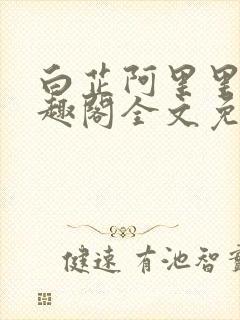 白芷阿里里
趣阁全文免
健速 有池智